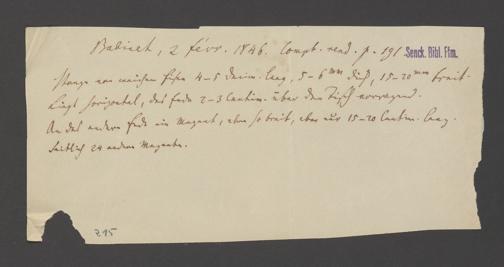 Babinet, 2 févr. 1846. Compt. rend. p. 191
Senck. Bibl. Ffm.
Stange von weichem Eisen 4-5 Decim. lang, 5-6 mm dick, 15-20 mm breit.
Liegt horizontal, das Ende 2-3 Centim. über den Tisch vorragend.
An das andere Ende ein Magnet, eben so breit, aber nur 15-20 Centim. lang.
Seitlich 24 andere Magnete.
Z 15